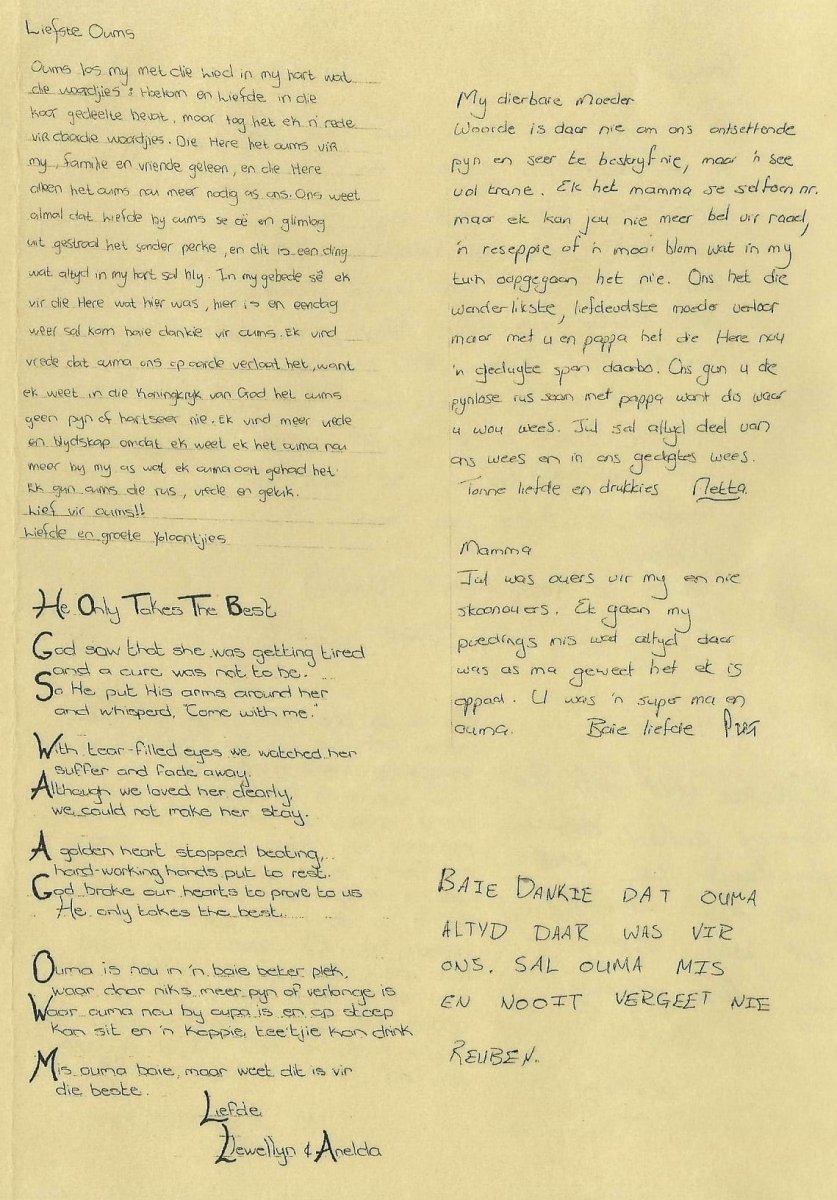 Liefste Oums
Oums los my met die lied in my hart wat
die woordjies : Hoekom en Liefde in die
koor gedeelte bevat, maar tog het ek n' rede
vir daardie woordjies. Die Here het oums vir
my, familie en vriende geleen, en die Here
alleen het oums nou meer nodig as ons. Ons weet
almal dat liefde by oums se oë en glimlag
uit gestraal het sonder perke, en dit is een ding
wat altyd in my hart sal bly. In my gebede sê ek
vir die Here wat hier was, hier is en eendag
weer sal kom baie dankie vir oums. Ek vind
vrede dat ouma ons op aarde verlaat het, want
ek weet in die Koningkryk van God het oums
geen pyn of hartseer nie. Ek vind meer vrede
en blydskap omdat ek weet ek het ouma nou
meer by my as wat ek ouma ooit gehad het.
Ek gun oums die rus, vrede en geluk.
Lief vir oums!!
Liefde en groete
He Only Takes The Best
God saw that she was getting tired
and a cure was not to be.
So He put His arms around her
and whisperd, "Come with me."
With tear-filled eyes we watched her
suffer and fade away.
Although we loved her dearly,
we could not make her stay.
A golden heart stopped beating,
hard-working hands put to rest.
God broke our hearts to prove to us
He only takes the best.
Ouma is nou in 'n baie beter plek,
waar daar niks meer pyn of verlange is
Waar ouma nou by oupa is en op stoep
kan sit en 'n koppie tee'tjie kan drink
Mis ouma baie, maar weet dit is vir
die beste.
Liefde
Llewellyn & Anelda
My dierbare Moeder
Woorde is daar nie om ons ontsettende
pyn en seer te beskryf nie, maar 'n see
vol trane. Ek het mamma se selfoon nr.
maar ek kan jou nie meer bel vir raad,
'n reseppie of 'n mooi blom wat in my
tuin oopgegaan het nie. Ons het die
wonderlikste, liefdevolste moeder verloor
maar met u en pappa het die Here nou
'n gedugte span daarbo. Ons gun u die
pynlose rus saam met pappa want dis waar
u wou wees. Jul sal altyd deel van
ons wees en in ons gedagtes wees.
Tonne liefde en drukkies Netta.
Mamma
Jul was ouers vir my en nie
skoonouers. Ek gaan my
poedings mis wat altyd daar
was as ma geweet het ek is
oppad. U was 'n super ma en
ouma. Baie liefde
BAIE DANKIE DAT OUMA
ALTYD DAAR WAS VIR
ONS. SAL OUMA MIS
EN NOOIT VERGEET NIE
REUBEN.